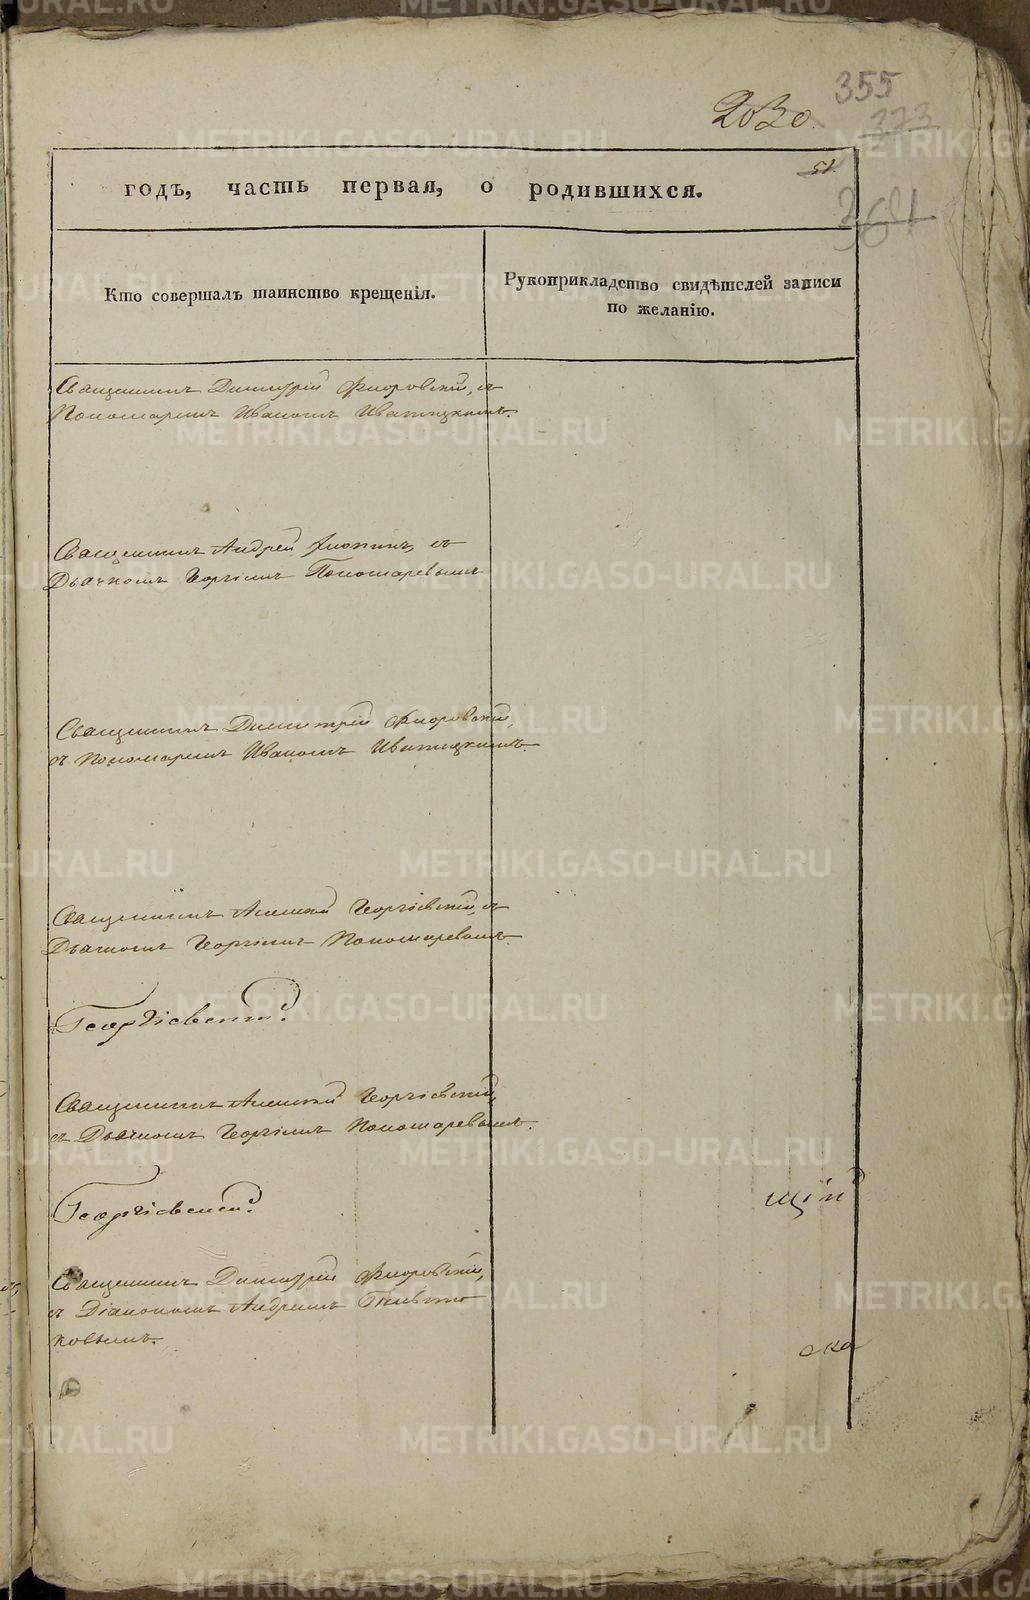 355
2030.
323
51
361
годъ, часть первая, о родившихся.
Кто совершалъ таинство крещенія.
Рукоприкладство свидѣтелей записи
по желанію.
Священникъ Димитрій Флоровскій, съ
Пономаремъ Иваномъ Иваницкимъ.
Священникъ Андрей съ
Дьячкомъ Георгіемъ Пономаревымъ
Священникъ Димитрій Флоровскій,
съ Пономаремъ Иваномъ Иваницкимъ
Священникъ Алексій Георгіевскій, съ
Дьячкомъ Георгіемъ Пономаревымъ.
Георгіевски?
Священникъ Алексій Георгіевскій,
съ Дьячкомъ Георгіемъ Пономаревымъ.
Георгіевски?
щій
Священникъ Димитрій Флоровскій,
съ Діакономъ Андреемъ
ковымъ.
ска
METRIKI.GASO-URAL.RU